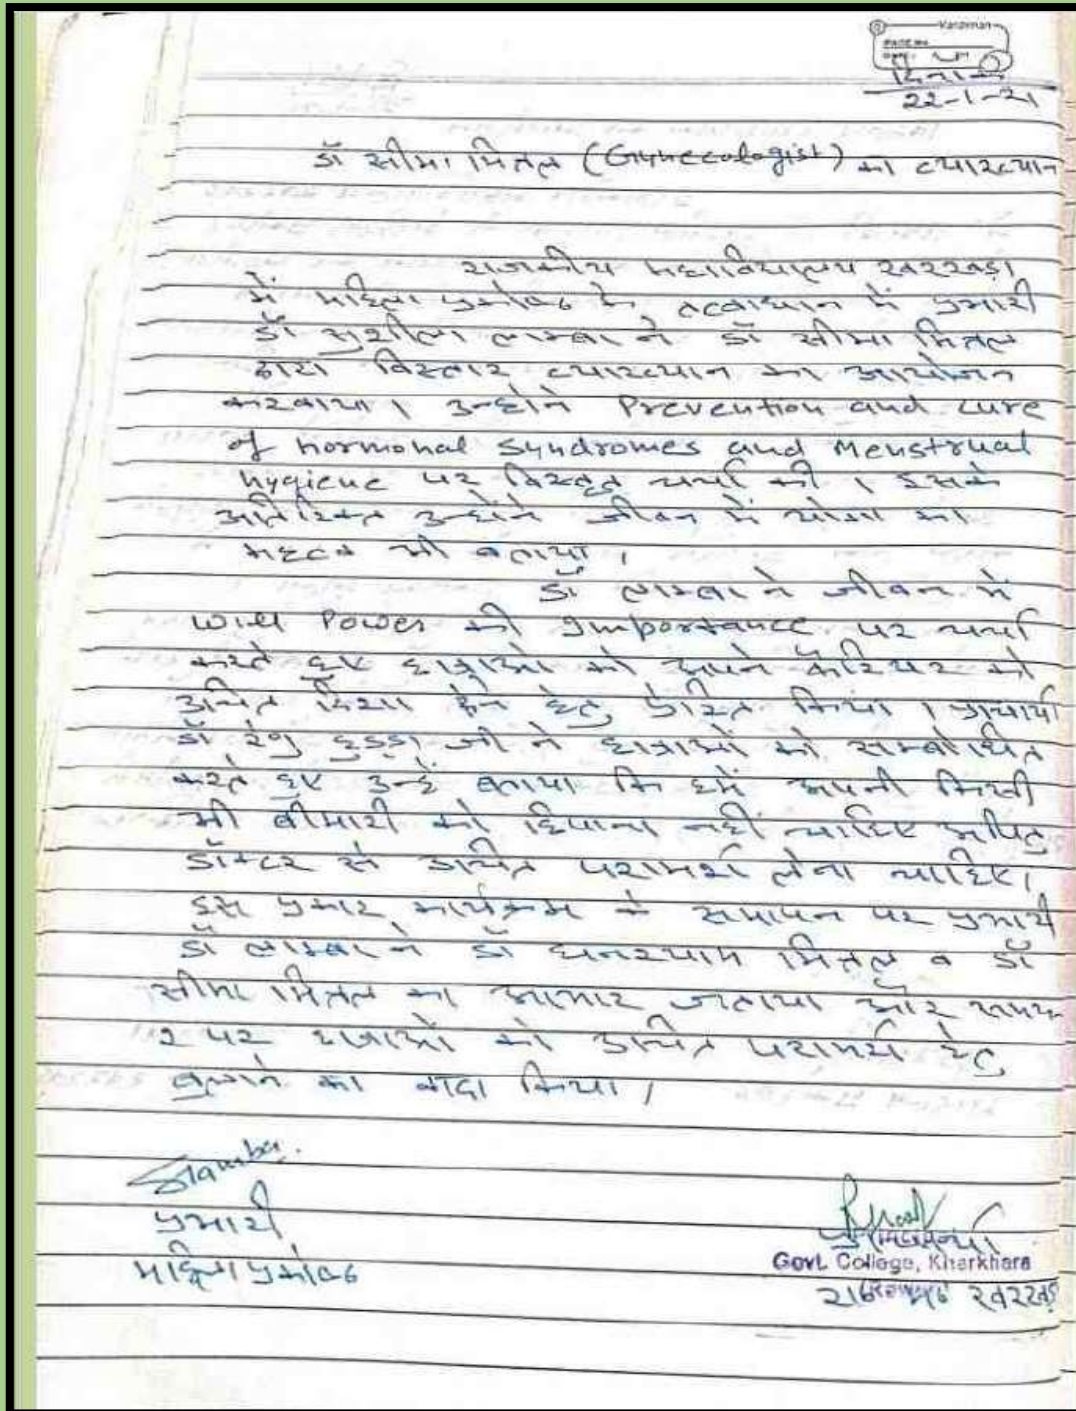 Vardhman
PAGE NO.
DATE
दिनांक
22-1-21
डॉ सीमा मित्तल (Gynecologist) का व्याख्यान
राजकीय महाविद्यालय खरखड़ा
में महिला प्रकोष्ठ के तत्वाधान में प्रभारी
डॉ सुशीला लाम्बा ने डॉ सीमा मित्तल
द्वारा विस्तार व्याख्यान का आयोजन
करवाया। उन्होंने Prevention and cure
of hormonal syndromes and Menstrual
hygiene पर विस्तृत चर्चा की। इसके
अतिरिक्त उन्होंने जीवन में योगा का
महत्व भी बताया।
डॉ लाम्बा ने जीवन में
will Power की Importance पर चर्चा
करते हुए छात्राओं को अपने कैरियर को
उचित दिशा देने हेतु प्रेरित किया। प्राचार्या
डॉ रेणु हुड्डा जी ने छात्राओं को सम्बोधित
करते हुए उन्हें बताया कि हमें अपनी किसी
भी बीमारी को छिपाना नहीं चाहिए अपितु
डॉक्टर से उचित परामर्श लेना चाहिए।
इस प्रकार कार्यक्रम के समापन पर प्रभारी
डॉ लाम्बा ने डॉ घनश्याम मित्तल व डॉ
सीमा मित्तल का आभार जताया और समय
२ पर छात्राओं को उचित परामर्श हेतु
बुलाने का वादा किया।
Slamba
प्रभारी
महिला प्रकोष्ठ
Govt. College, Kharkhara
खरखड़ा